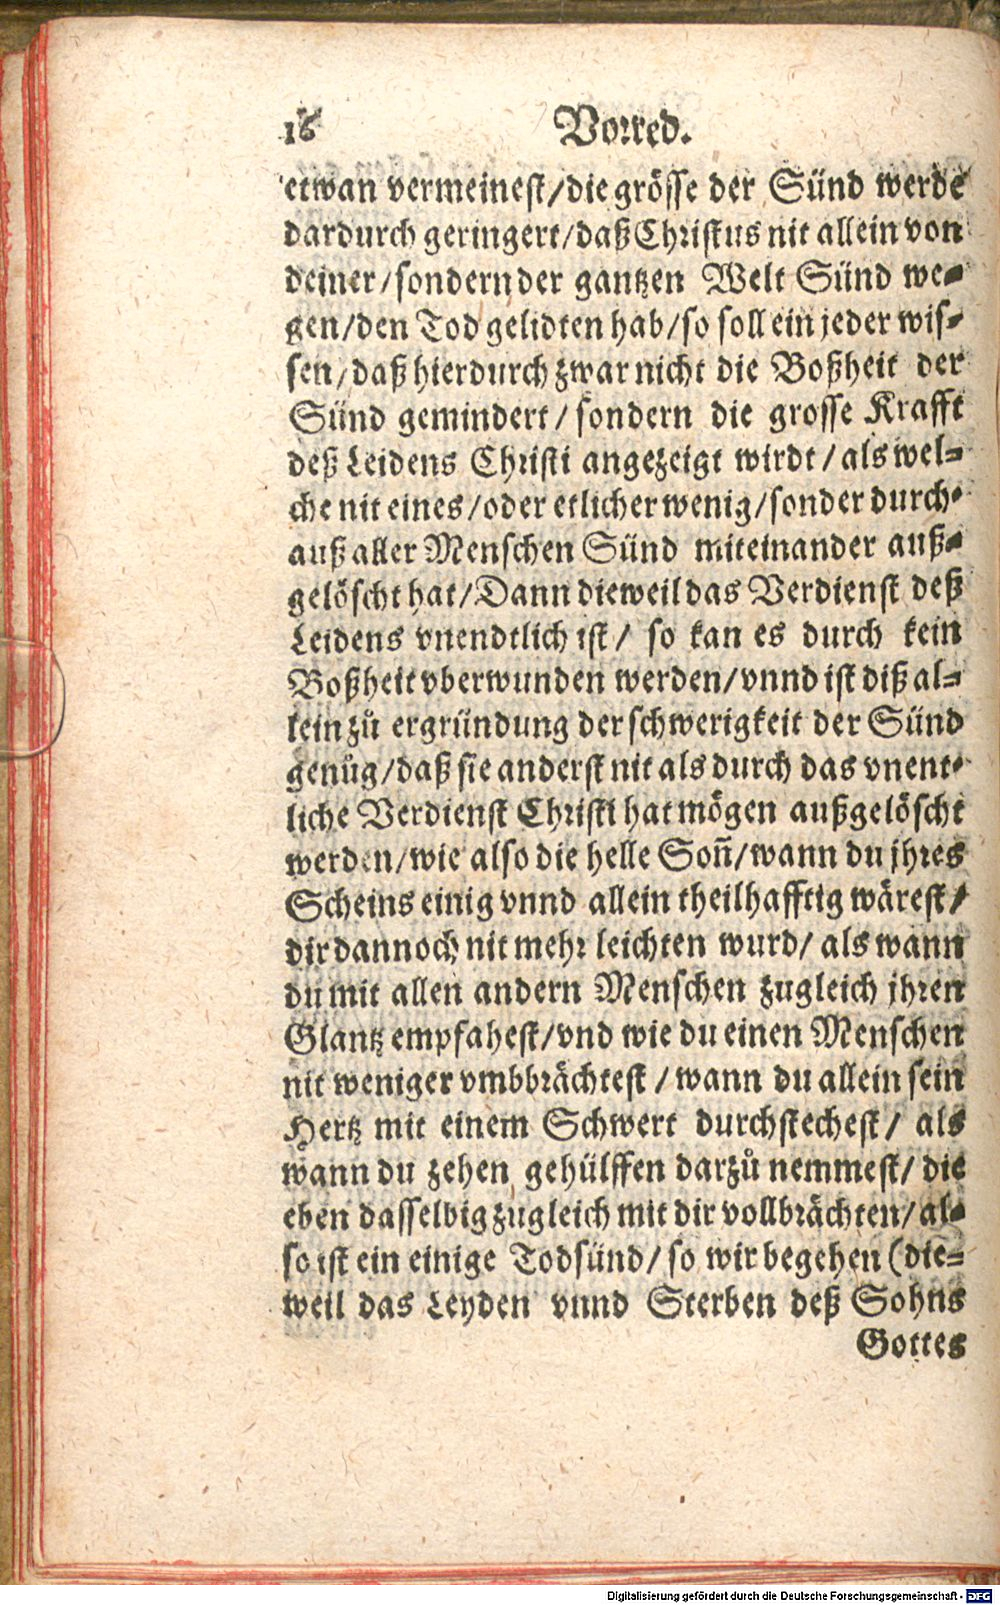 16 Vorred.
etwan vermeinest/die grösse der Sünd werde
dardurch geringert/daß Christus nit allein von
deiner/sondern der gantzen Welt Sünd we-
gen/den Tod gelidten hab/so soll ein jeder wis-
sen/daß hierdurch zwar nicht die Boßheit der
Sünd gemindert/ sondern die grosse Krafft
deß Leidens Christi angezeigt wirdt/als wel-
che nit eines/oder etlicher wenig/sonder durch-
auß aller Menschen Sünd miteinander auß-
gelöscht hat/Dann dieweil das Verdienst deß
Leidens vnendtlich ist/ so kan es durch kein
Boßheit vberwunden werden/vnnd ist diß al-
lein zů ergründung der schwerigkeit der Sünd
genůg/daß sie anderst nit als durch das vnent-
liche Verdienst Christi hat mögen außgelöscht
werden/wie also die helle Soñ/wann du jhres
Scheins einig vnnd allein theilhafftig wärest/
dir dannoch nit mehr leichten wurd/ als wann
du mit allen andern Menschen zugleich jhren
Glantz empfahest/vnd wie du einen Menschen
nit weniger vmbbrächtest/wann du allein sein
Hertz mit einem Schwert durchstechest/ als
wann du zehen gehülffen darzů nemmest/ die
eben dasselbig zugleich mit dir vollbrächten/al-
so ist ein einige Todsünd/so wir begehen (die-
weil das Leyden vnnd Sterben deß Sohns
Gottes
Digitalisierung gefördert durch die Deutsche Forschungsgemeinschaft - DFG